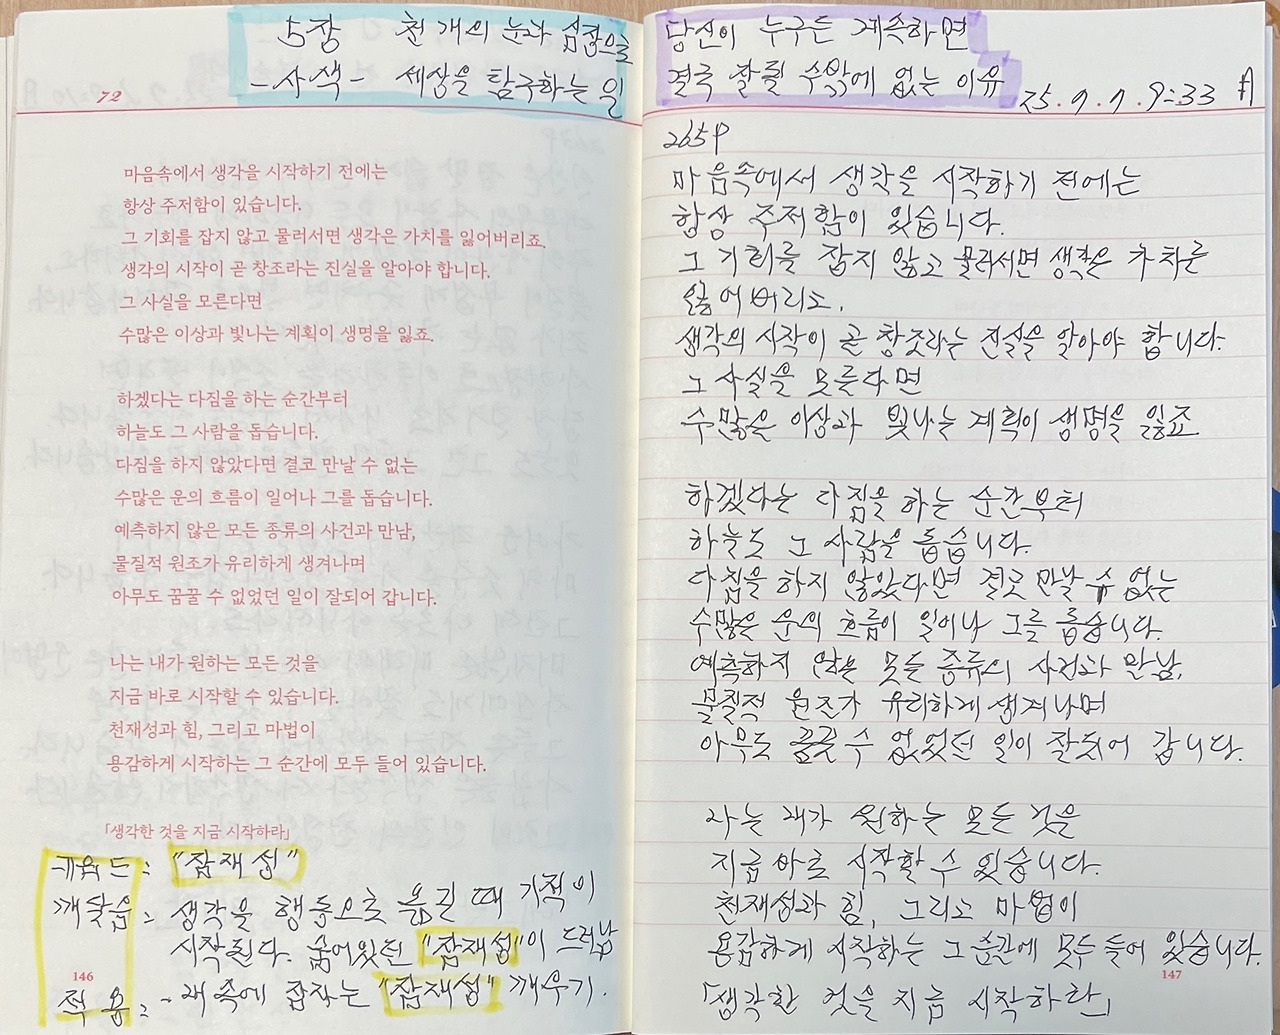 5장 천 개의 눈과 심장으로
- 사색 - 세상을 탐구하는 일
72
마음속에서 생각을 시작하기 전에는
항상 주저함이 있습니다.
그 기회를 잡지 않고 물러서면 생각은 가치를 잃어버리죠.
생각의 시작이 곧 창조라는 진실을 알아야 합니다.
그 사실을 모른다면
수많은 이상과 빛나는 계획이 생명을 잃죠.
하겠다는 다짐을 하는 순간부터
하늘도 그 사람을 돕습니다.
다짐을 하지 않았다면 결코 만날 수 없는
수많은 운의 흐름이 일어나 그를 돕습니다.
예측하지 않은 모든 종류의 사건과 만남,
물질적 원조가 유리하게 생겨나며
아무도 꿈꿀 수 없었던 일이 잘되어 갑니다.
나는 내가 원하는 모든 것을
지금 바로 시작할 수 있습니다.
천재성과 힘, 그리고 마법이
용감하게 시작하는 그 순간에 모두 들어 있습니다.
「생각한 것을 지금 시작하라」
키워드 : "잠재성"
깨달음 : 생각을 행동으로 옮길 때 기적이
시작된다. 숨어있던 "잠재성"이 드러남
146
적 용 : - 내 속에 잠자는 "잠재성" 깨우기.
당신이 누구든 계속하면
결국 잘될 수밖에 없는 이유
25. 9. 1. 9:33 A
265P
마음속에서 생각을 시작하기 전에는
항상 주저함이 있습니다.
그 기회를 잡지 않고 물러서면 생각은 가치를
잃어버리죠.
생각의 시작이 곧 창조라는 진실을 알아야 합니다.
그 사실을 모른다면
수많은 이상과 빛나는 계획이 생명을 잃죠
하겠다는 다짐을 하는 순간부터
하늘도 그 사람을 돕습니다.
다짐을 하지 않았다면 결코 만날 수 없는
수많은 운의 흐름이 일어나 그를 돕습니다.
예측하지 않은 모든 종류의 사건과 만남,
물질적 원조가 유리하게 생겨나며
아무도 꿈꿀 수 없었던 일이 잘되어 갑니다.
나는 내가 원하는 모든 것을
지금 바로 시작할 수 있습니다.
천재성과 힘, 그리고 마법이
용감하게 시작하는 그 순간에 모두 들어 있습니다.
147
「생각한 것을 지금 시작하라」